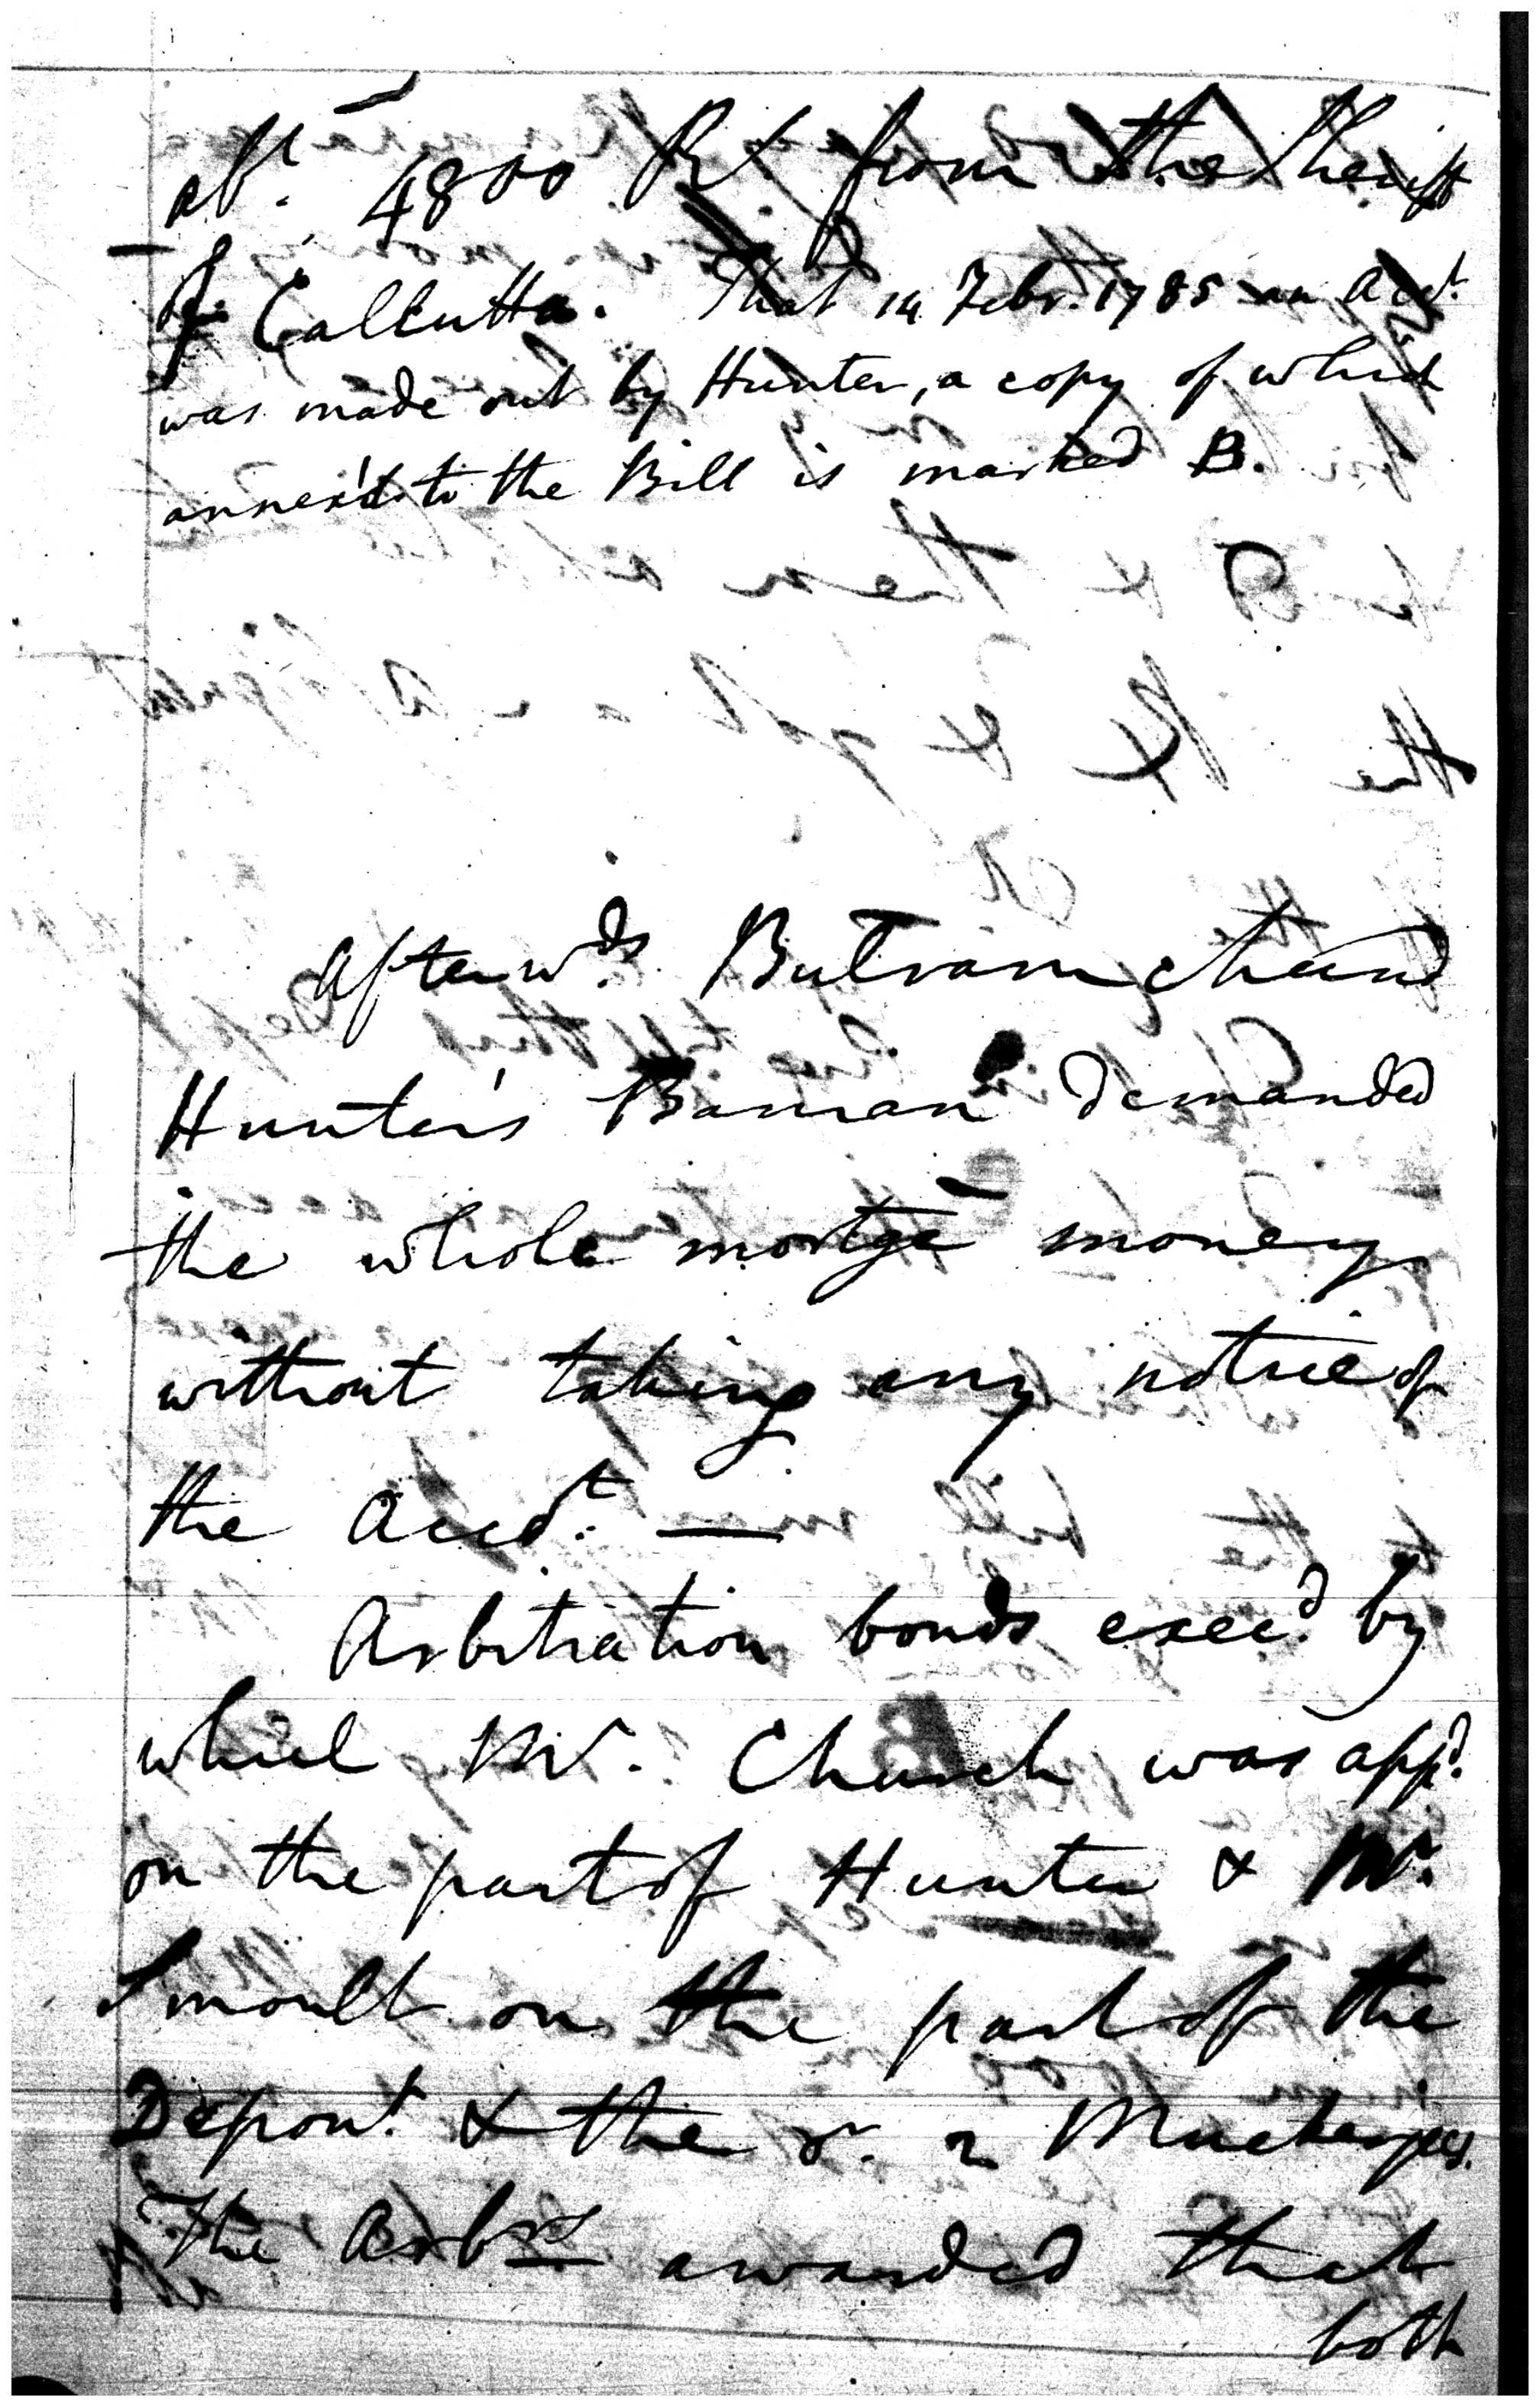 abt. 4800 Rs from the Sheriff
of Calcutta. That 14 Febr. 1785 an Acct.
was made out by Hunter, a copy of which
annex'd to the Bill is marked B.
Afterwds. Bulram chund
Hunter's Banian demanded
the whole mortge money
without taking any notice of
the Acct. —
Arbitration bonds exec'd. by
which Mr. Church was appd.
on the part of Hunter & Mr.
Smoult on the part of the
Depont. & the sd. 2 Muckerjees.
The Arbrs awarded that
both